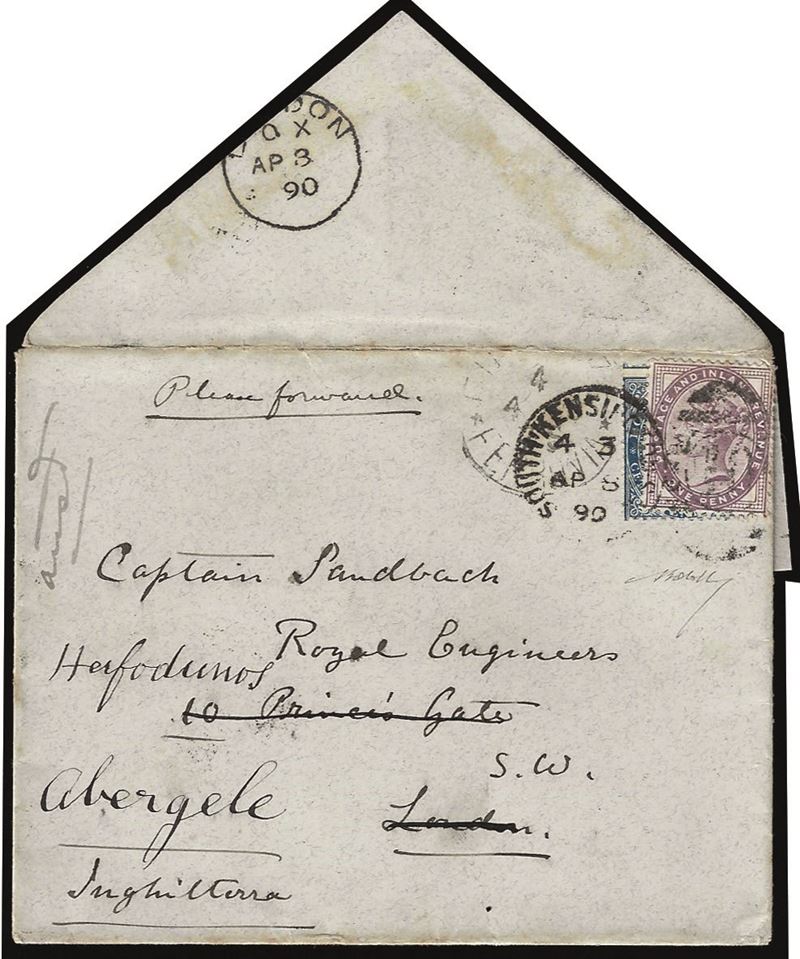 LONDON
Q X
AP 8
90
Please forward.
4
SOUTH KENSINGTON
4 3
AP 8
90
POSTAGE AND INLAND REVENUE
ONE PENNY
Captain Sandbach
Royal Engineers
Hafodunos
10 Prince's Gate
S.W.
Abergele
London.
Inghilterra